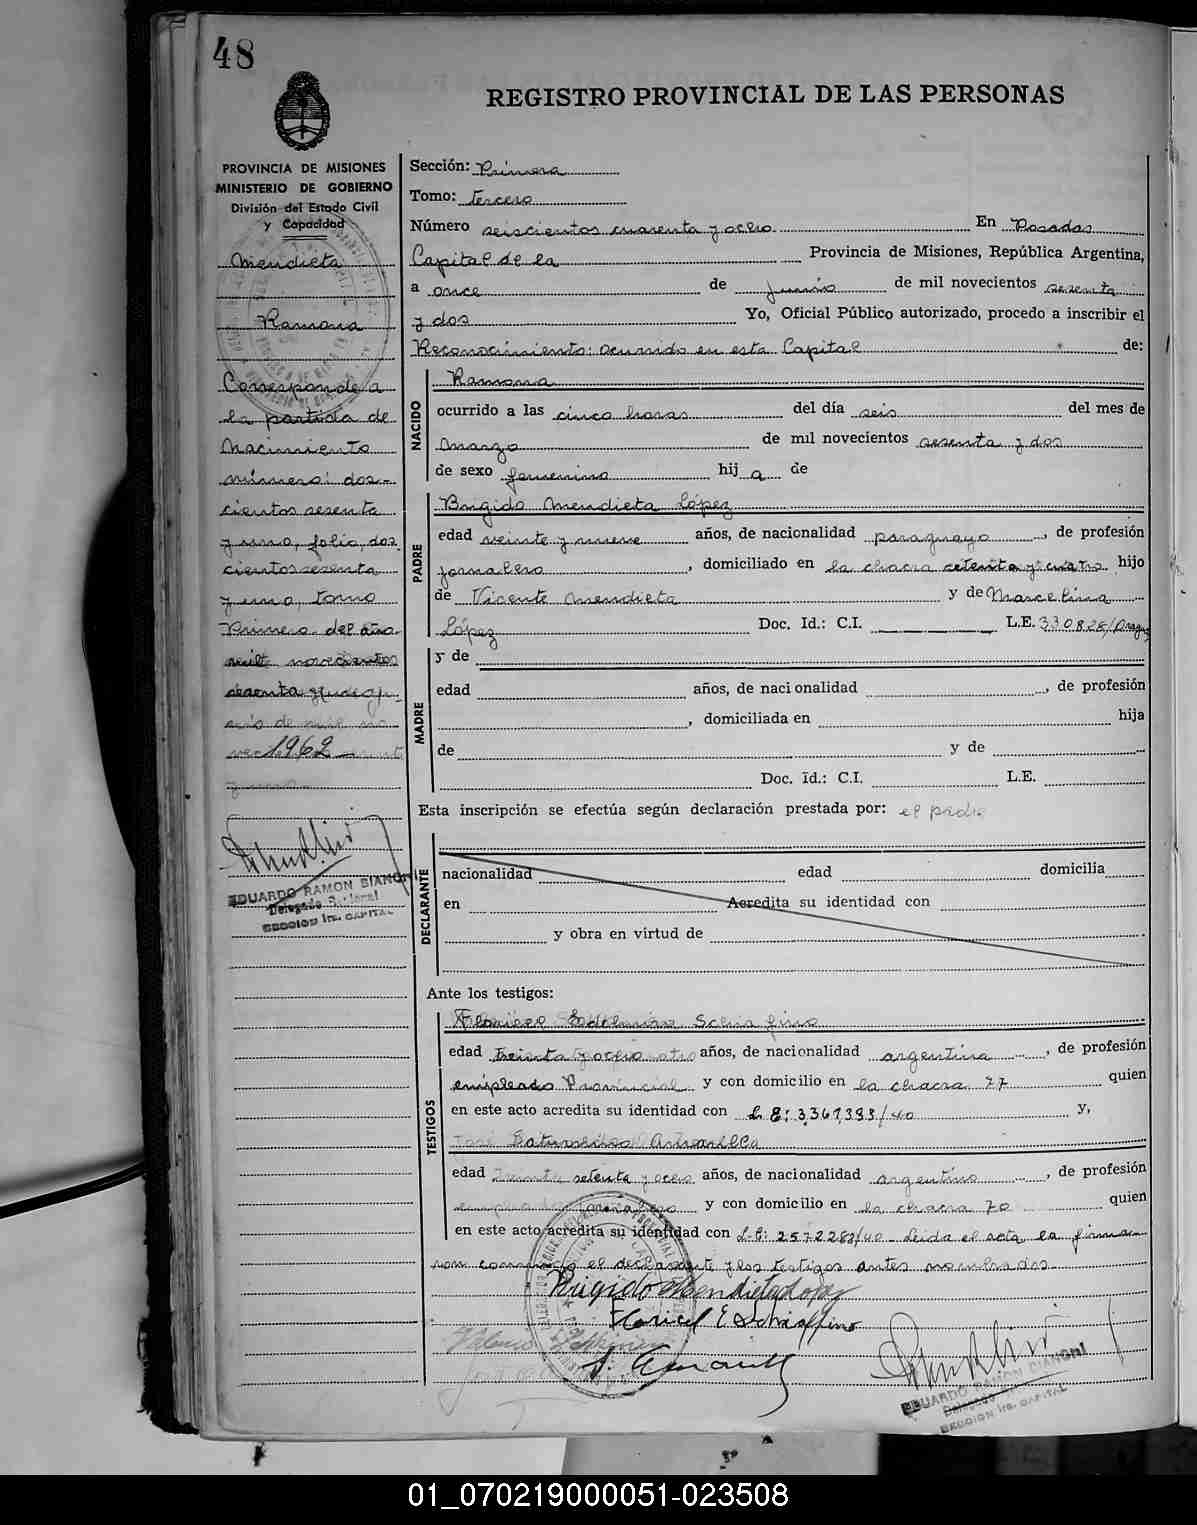 48
REGISTRO PROVINCIAL DE LAS PERSONAS
PROVINCIA DE MISIONES
MINISTERIO DE GOBIERNO
División del Estado Civil
y Capacidad
Mendieta
Ramona
Corresponde a
la partida de
Nacimiento
número: dos-
cientos sesenta
y uno, folio, dos
cientos sesenta
y uno, tomo
Primero del año
mil novecientos
sesenta y dos
1962
EDUARDO RAMON BIANCHI
Delegado Seccional
SECCION 1ra. CAPITAL
Sección: Primera
Tomo: tercero
Número seiscientos cuarenta y ocho En Posadas
Capital de la Provincia de Misiones, República Argentina,
a once de junio de mil novecientos sesenta
y dos Yo, Oficial Público autorizado, procedo a inscribir el
Reconocimiento: ocurrido en esta Capital de:
NACIDO
Ramona
ocurrido a las cinco horas del día seis del mes de
Marzo de mil novecientos sesenta y dos
de sexo femenino hij a de
PADRE
Brigido Mendieta López
edad veinte y nueve años, de nacionalidad paraguayo, de profesión
jornalero, domiciliado en la chacra setenta y cuatro hijo
de Vicente Mendieta y de Marcelina
López Doc. Id.: C.I. L.E. 330.828/
MADRE
y de
edad años, de nacionalidad, de profesión
, domiciliada en hija
de y de
Doc. Id.: C.I. L.E.
Esta inscripción se efectúa según declaración prestada por: el padre
DECLARANTE
nacionalidad edad domicilia
en Acredita su identidad con
y obra en virtud de
Ante los testigos:
TESTIGOS
Floricel Edelmiro Schiaffino
edad treinta y ocho años, de nacionalidad argentina, de profesión
empleado Provincial y con domicilio en la chacra 77 quien
en este acto acredita su identidad con L E: 3,367,393/40 y,
Saturnino
edad setenta y ocho años, de nacionalidad argentino, de profesión
jornalero y con domicilio en la chacra 70 quien
en este acto acredita su identidad con L.E: 2572283/40 - Leida el acta la firman
con conmigo el declarante y los testigos antes nombrados
Brigido Mendieta Lopez
Floricel E Schiaffino
EDUARDO RAMON BIANCHI
Delegado
SECCION 1ra. CAPITAL
01_070219000051-023508